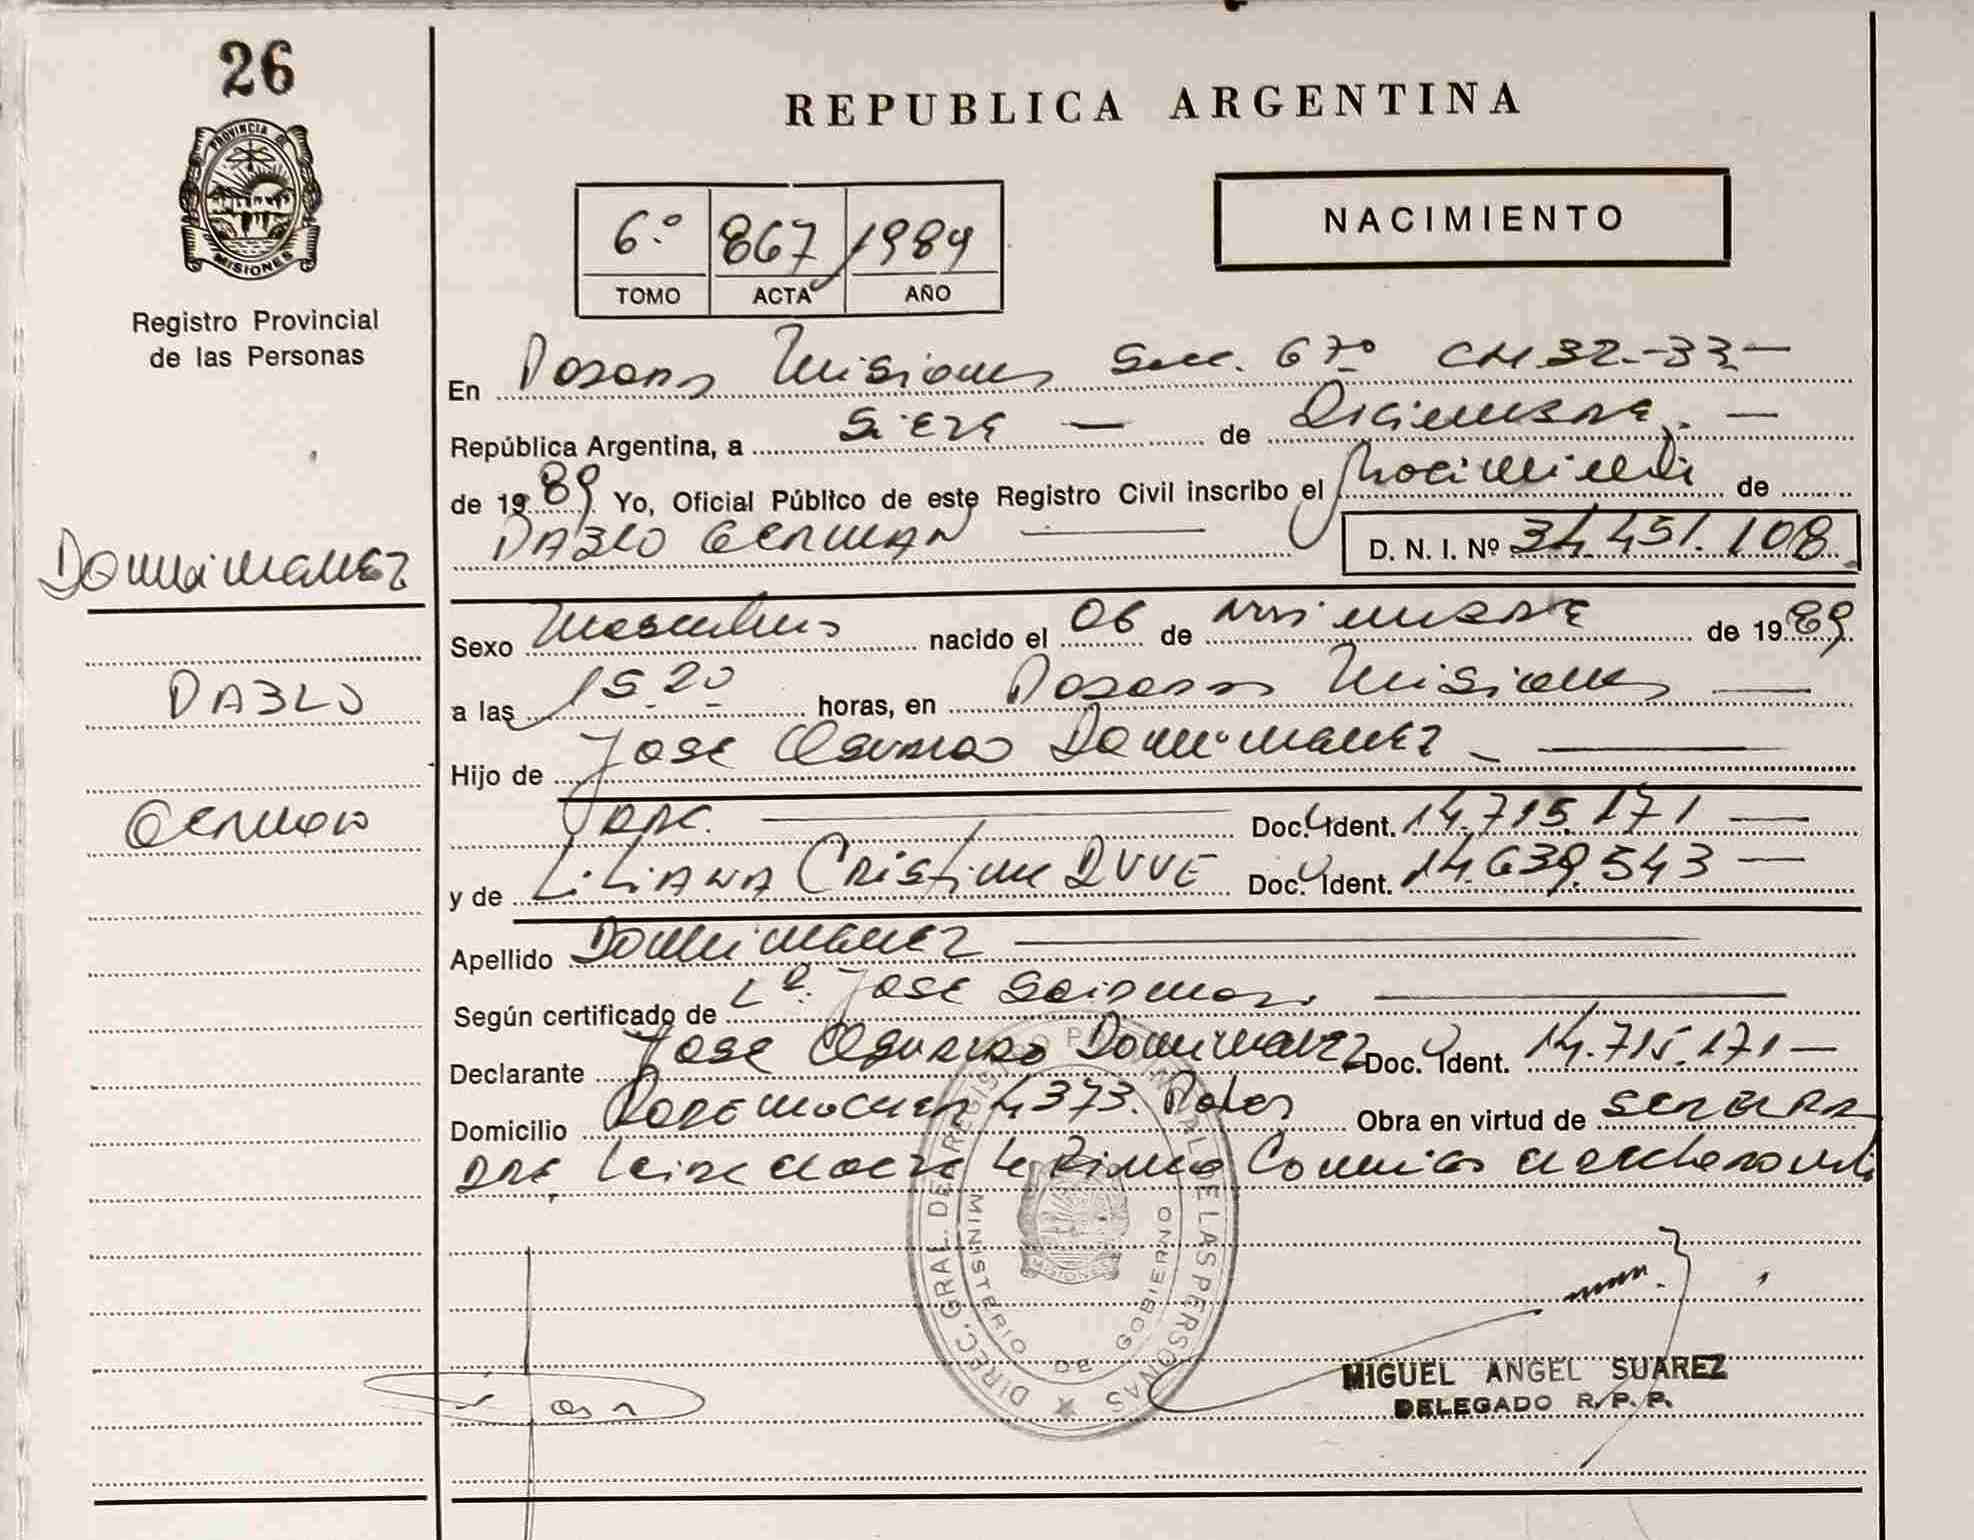 26
REPUBLICA ARGENTINA
PROVINCIA DE
MISIONES
NACIMIENTO
6.º 867 1989
TOMO ACTA AÑO
Registro Provincial
de las Personas
En Posadas Misiones Secc. 67º CH 32.-33.-
República Argentina, a SiETE — de DiciEMBRE. —
de 1989 Yo, Oficial Público de este Registro Civil inscribo el Nacimiento de
PABLO GERMAN — D. N. I. Nº 34.451.108
DOMMiMANEZ
Sexo Masculino nacido el 06 de NoviEMBRE de 1989
PABLO
a las 15.20 horas, en Posadas Misiones —
Hijo de JOSE DOMMiMANEZ —
GERMAN
— Doc. Ident. 14.715.171 —
y de LiLiANA CRiStiNA Doc. Ident. 14.639.543 —
Apellido DOMMiMANEZ —
Según certificado de JOSE —
Declarante JOSE DOMMiMANEZ Doc. Ident. 14.715.171 —
Domicilio 4373. Pdas Obra en virtud de
DIREC. GRAL. DEL REGISTRO PROVINCIAL DE LAS PERSONAS
MINISTERIO DE GOBIERNO
MISIONES
MIGUEL ANGEL SUAREZ
DELEGADO R.P.P.